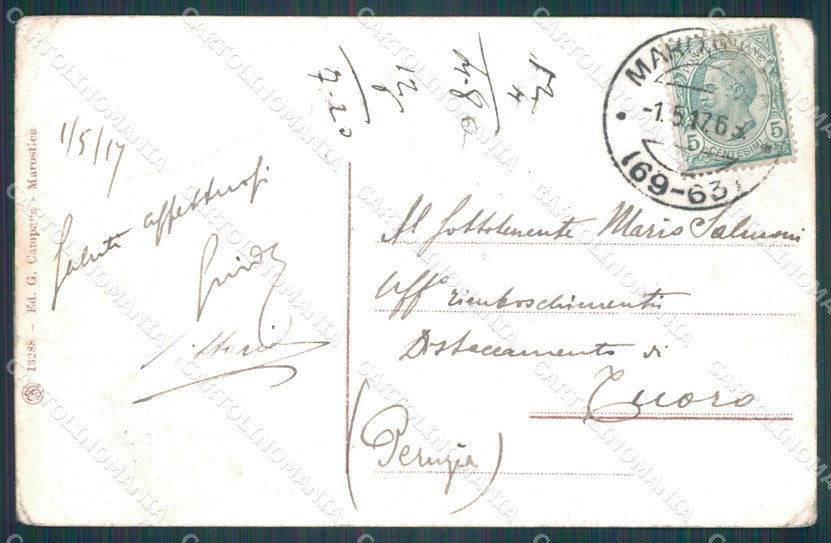 1/5/17
Saluti affettuosi
Guido
Vittoria
12
4
4.80
12
7.20
Al Sottotenente Mario Salmoni
Uff° rimboschimenti
Distaccamento di
Tuoro
(Perugia)
MAR
-1.5.17.6
(69-63)
POSTE ITALIANE
5 5
CENTESIMI
13288 - Ed. G. Campana - Marostica
CARTOLINOMANIA